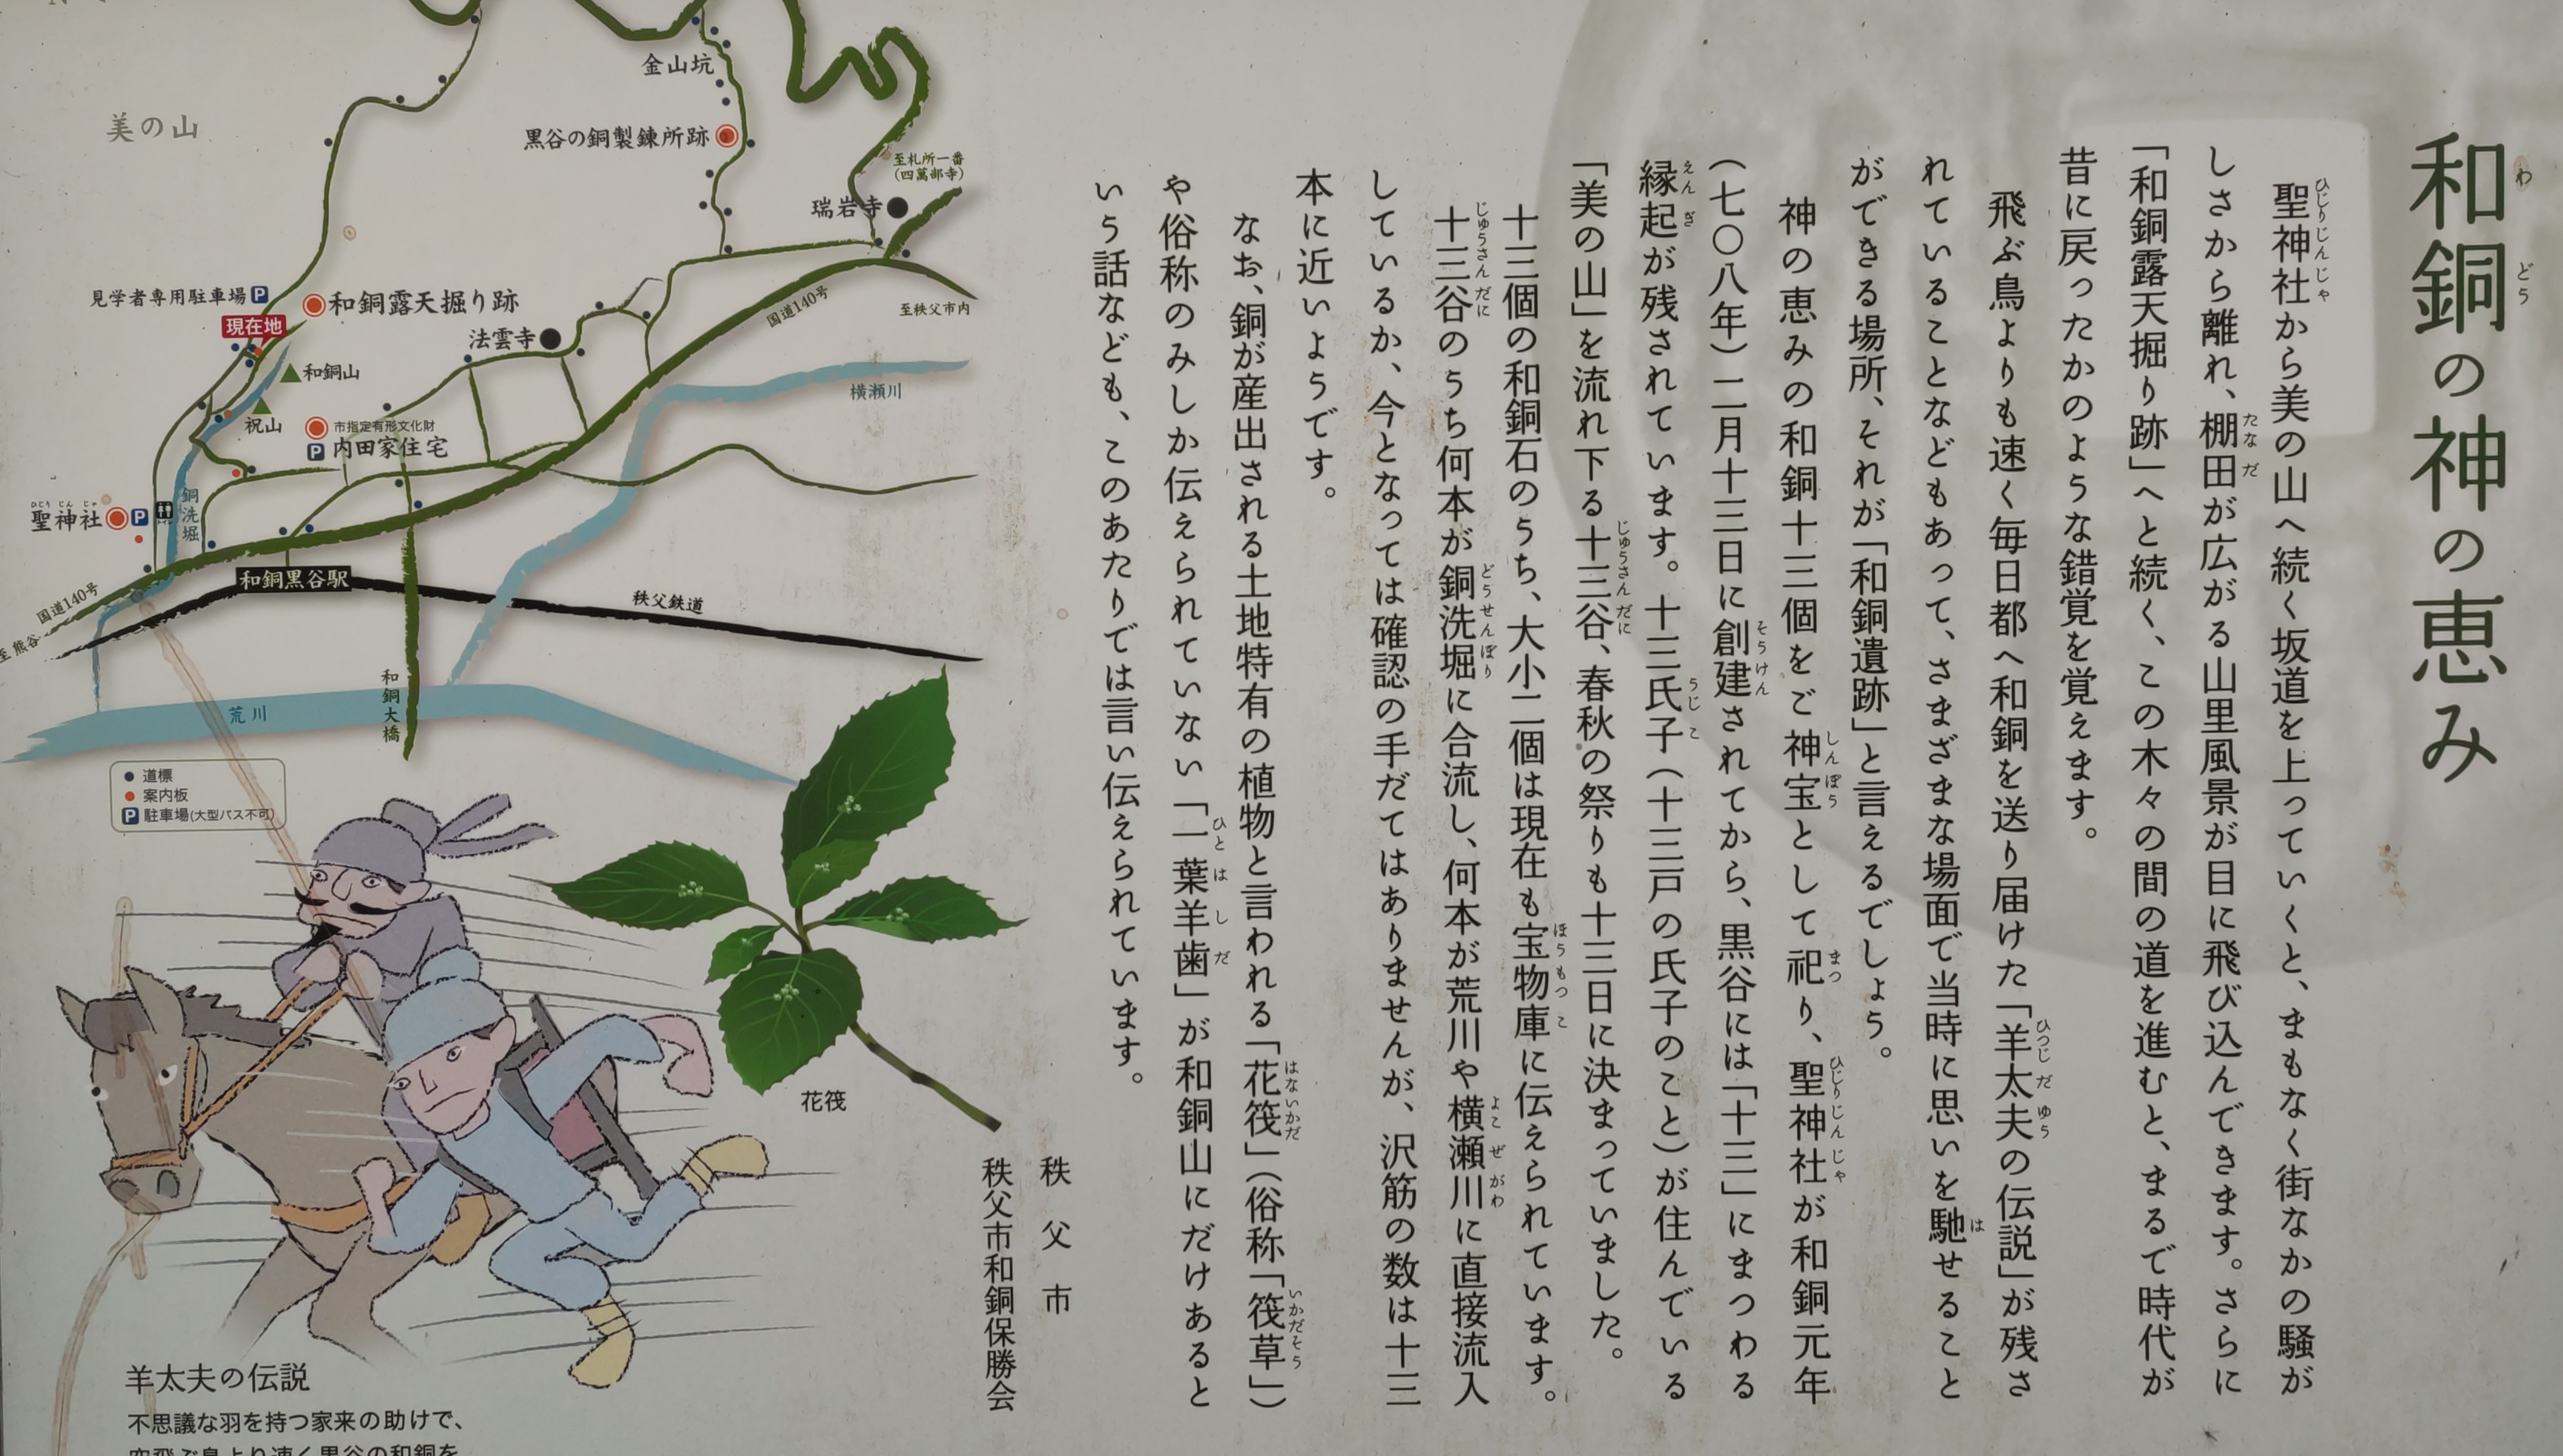 和銅の神の恵み
聖神社から美の山へ続く坂道を上っていくと、まもなく街なかの騒が
しさから離れ、棚田が広がる山里風景が目に飛び込んできます。さらに
「和銅露天掘り跡」へと続く、この木々の間の道を進むと、まるで時代が
昔に戻ったかのような錯覚を覚えます。
飛ぶ鳥よりも速く毎日都へ和銅を送り届けた「羊太夫の伝説」が残さ
れていることなどもあって、さまざまな場面で当時に思いを馳せること
ができる場所、それが「和銅遺跡」と言えるでしょう。
神の恵みの和銅十三個をご神宝として祀り、聖神社が和銅元年
(七〇八年)二月十三日に創建されてから、黒谷には「十三」にまつわる
縁起が残されています。十三氏子(十三戸の氏子のこと)が住んでいる
「美の山」を流れ下る十三谷、春秋の祭りも十三日に決まっていました。
十三個の和銅石のうち、大小二個は現在も宝物庫に伝えられています。
十三谷のうち何本が銅洗堀に合流し、何本が荒川や横瀬川に直接流入
しているか、今となっては確認の手だてはありませんが、沢筋の数は十三
本に近いようです。
なお、銅が産出される土地特有の植物と言われる「花筏」(俗称「筏草」)
や俗称のみしか伝えられていない「一葉羊歯」が和銅山にだけあると
いう話なども、このあたりでは言い伝えられています。
秩父市
秩父市和銅保勝会
金山坑
美の山
黒谷の銅製錬所跡
至札所一番
(四萬部寺)
瑞岩寺
見学者専用駐車場 P
和銅露天掘り跡
現在地
国道140号
至秩父市内
法雲寺
和銅山
横瀬川
祝山
市指定有形文化財
P 内田家住宅
ひじりじんじゃ
聖神社
P
銅洗堀
和銅黒谷駅
国道140号
至 熊谷
秩父鉄道
和銅大橋
荒川
道標
案内板
P 駐車場(大型バス不可)
花筏
羊太夫の伝説
不思議な羽を持つ家来の助けで、
空飛ぶ鳥より速く黒谷の和銅を